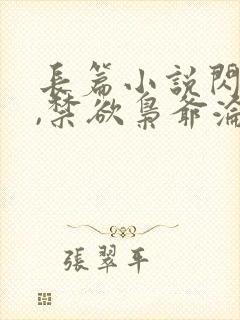 長篇小説閃
,禁欲梟爺淪
張翠平